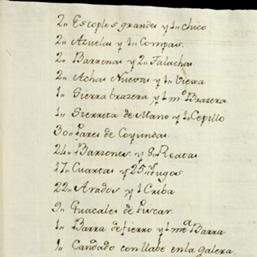 2,, Escoplos grandes y 1,, chico
2,, Azuelas y 1,, Compas
2,, Barrenas y 2,, Talachas
2,, Achas Nuevas y 1,, Vieja
1,, Sierra brazera y 1,, mª Brazera
1,, Sierrita de Mano y 1,, Cepillo
30,, Pares de Coyundas
24,, Barzones y 8,, Reatas
17,, Cuartas y 25,, Yugos
22,, Arados y 1 Criba
9,, Guacales de
1,, Barra de fierro y 1,, mª Barra
1,, Candado con llabe en la galera